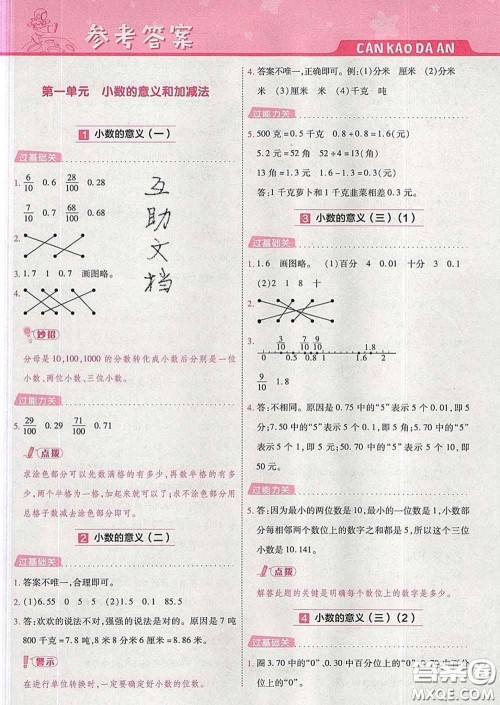 参考答案
CANKAO DA AN
第一单元 小数的意义和加减法
1 小数的意义(一)
过基础关
1. 6/10 0.6 28/100 0.28
7/10 0.7 68/100 0.68
2.
3. 1.7 1 0.7 画图略。
4.
妙招
分母是10,100,1000的分数转化成小数后分别是一位
小数、两位小数、三位小数。
过能力关
5. 29/100 0.29 71/100 0.71
点拨
求涂色部分可以先数满格的有多少,再数半格的有多
少,最后两者合在一起,加起来就可以了;求未涂色部分用总
格子数减去涂色部分即可。
2 小数的意义(二)
过基础关
1. 答案不唯一,合理即可。
2. (1)6.55 0 5 5 (2)1.5 5 5
3. 答:欢欢的说法不对,强强的说法正确。原因是7吨
800千克=7.8吨,8米86厘米=8.86米。
警示
在进行单位转换时,一定要确定好小数的位数。
互
助
文
档
4. 答案不唯一,正确即可。例:(1)分米 厘米 分米
米 (2)厘米 米 (3)千克 千克 吨
过能力关
5. 500克=0.5千克 1.6-0.6=1(千克)
5.2元=52角 52÷4=13(角)
13角=1.3元 1.6-1.3=0.3(元)
答:1千克萝卜和1千克韭菜相差0.3元。
3 小数的意义(三)(1)
过基础关
1. 1.6 画图略。(1)百分 4 0.01 十分 3 0.1
(2)2 1 8 十
2.
3. 0 9/10 1 1.4 1.8 2
9/10 1.8
4. 答:不相同。原因是0.75中的“5”表示5个0.01,即5
分;7.50中的“5”表示5个0.1,即5角;5.70中的“5”
表示5个1,即5元;50.70中的“5”表示5个10,即50
元。
过能力关
5. 答:因为最小的两位数是10,一位小数是0.1,小数部
分每相邻两个数位上的数字之和都是5,所以这个三位
小数是10.141。
点拨
解答此题的关键是明确每个数位上的数字是多少。
4 小数的意义(三)(2)
过基础关
1. 圈3.70中的“0”,0.30中百分位上的“0”,0.400中的
答案圈
MXQE.COM